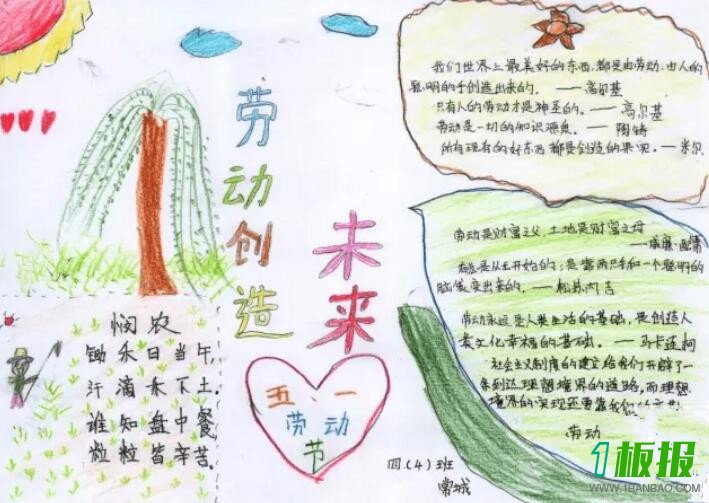 劳动创造
未来
悯农
锄禾日当午,
汗滴禾下土.
谁知盘中餐,
粒粒皆辛苦.
五.一
劳动
节
我们世界上最美好的东西,都是由劳动、由人的
聪明的手创造出来的。——高尔基
只有人的劳动才是神圣的。——高尔基
劳动是一切的知识源泉。——陶铸
所有现有的好东西都是创造的果实。——米尔
劳动是财富之父,土地是财富之母
——威廉·配第
是从王开始的;是靠两只手和一个聪明的
脑袋变出来的。——松苏内吉
劳动永远是人类生活的基础,是创造人
类文化幸福的基础。——马卡连柯
社会主义制度的建立给我们开辟了一
条到达理想境界的道路,而理想
境界的实现还要靠我们的
劳动
四.(4)班
常城
1板报
WWW.1BANBAO.COM